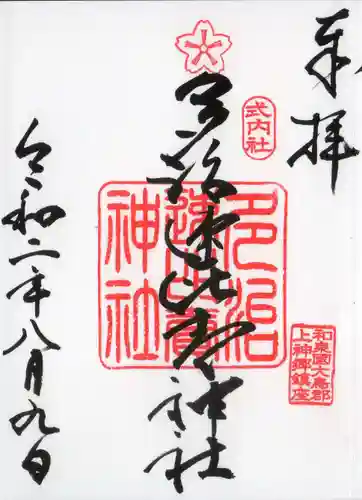 奉拝
式内社
多治速比売神社
多治速比賣神社
和泉國大鳥郡
上神郷鎮座
令和二年八月九日